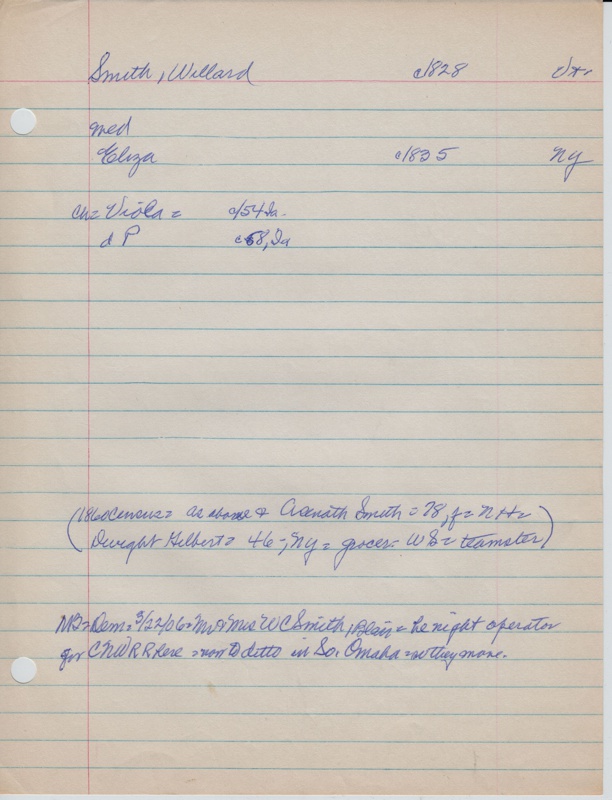 Smith, Willard c1828 Vt
med
Eliza c1835 NY
ch= Viola = c/54 Ia.
d P c58, Ia
(1860 census = as above & Asenath Smith = 78, f = NH =
Dwight Gilbert = 46 =, NY = grocer = WS = teamster)
= Dem = 3/22/06 = Mr & Mrs W C Smith, Blair = he night operator
for CNW RR here = now to ditto in So. Omaha = so they move.